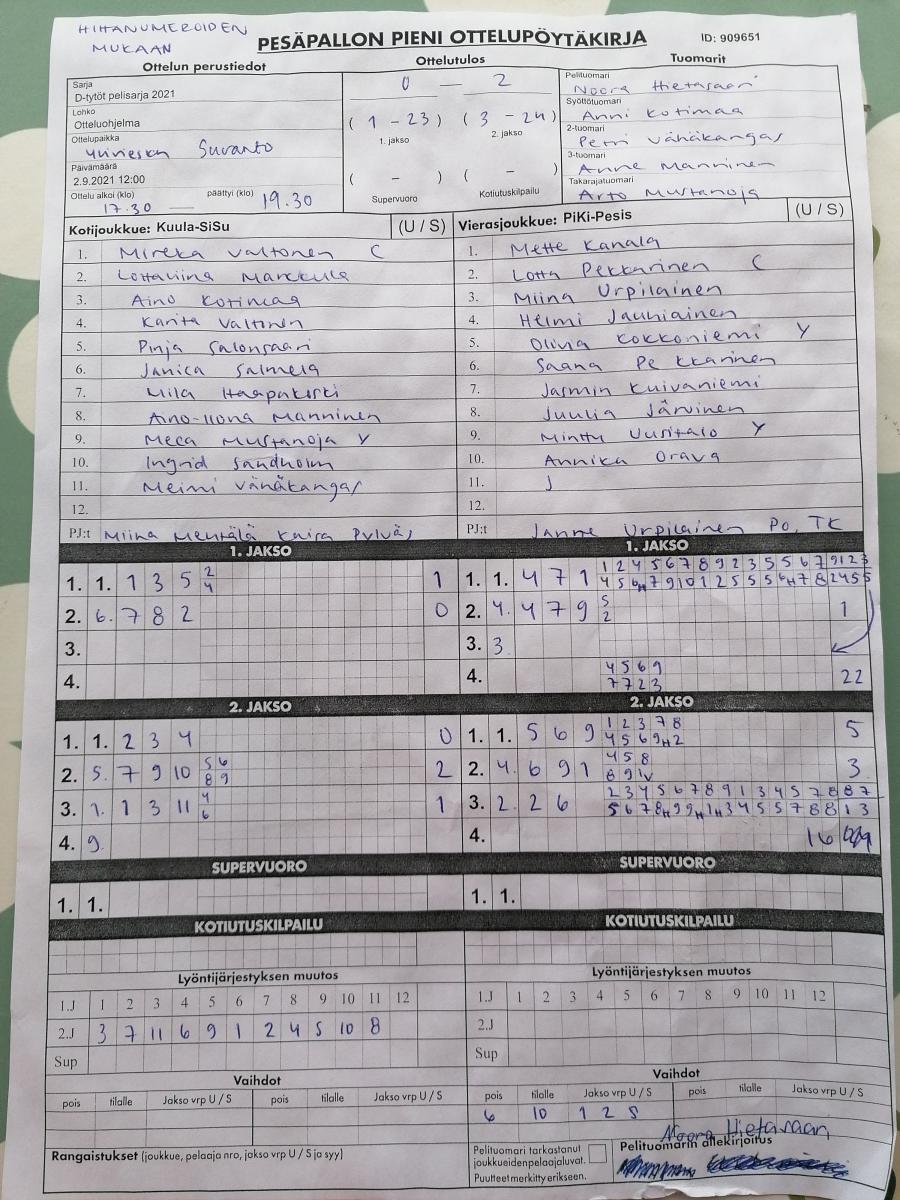 HIHANUMEROIDEN
MUKAAN
PESÄPALLON PIENI OTTELUPÖYTÄKIRJA
ID: 909651
Ottelun perustiedot
Sarja
D-tytöt pelisarja 2021
Lohko
Otteluohjelma
Ottelupaikka
Ylivieska Suvanto
Päivämäärä
2.9.2021 12:00
Ottelu alkoi (klo) päättyi (klo)
17.30 — 19.30
Ottelutulos
0 — 2
(1 - 23) (3 - 24)
1. jakso 2. jakso
( - ) ( - )
Supervuoro Kotiutuskilpailu
Tuomarit
Pelituomari
Noora Hietasaari
Syöttötuomari
Anni Kotimaa
2-tuomari
Petri Vähäkangas
3-tuomari
Anne Manninen
Takarajatuomari
Arto Mustanoja
Kotijoukkue: Kuula-SiSu (U / S)
1. Mireka Valtonen C
2. Lottaviina Markkula
3. Aino Kotimaa
4. Karita Valtonen
5. Pinja Salonsaari
6. Janica Salmela
7. Mila Haapakoski
8. Aino-Ilona Manninen
9. Meca Mustanoja Y
10. Ingrid Sandholm
11. Meimi Vähäkangas
12.
PJ:t Miina Mentälä Kaisa Pylväs
Vierasjoukkue: PiKi-Pesis (U / S)
1. Mette Kanala
2. Lotta Pekkarinen C
3. Miina Urpilainen
4. Helmi Jauhiainen
5. Olivia Kokkoniemi Y
6. Saana Pekkarinen
7. Jasmin Kuivaniemi
8. Juulia Järvinen
9. Minttu Uusitalo Y
10. Annika Orava
11. J
12.
PJ:t Janne Urpilainen PO, TK
1. JAKSO
1. 1. 1 3 5 2 1
4
2. 6. 7 8 2 0
3.
4.
1. JAKSO
1 2 4 5 6 7 8 9 2 3 5 5 6 7 9 1 2 3
1. 1. 4 7 1 4 5 6H 7 9 10 1 2 5 5 5 6H 7 8 2 4 5 5
2. 4. 4 7 9 5 1
2
3. 3
4. 4 5 6 9 22
7 7 2 3
2. JAKSO
1. 1. 2 3 4 0
2. 5. 7 9 10 5 6 2
8 9
3. 1. 1 3 11 4 1
6
4. 9.
2. JAKSO
1. 1. 5 6 9 1 2 3 7 8 5
4 5 6 9H 2
2. 4. 6 9 1 4 5 8 3
8 9 1V
3. 2. 2 6 2 3 4 5 6 7 8 9 1 3 4 5 7 8 8 7
5 6 7 8H 9 9H 1H 3 4 5 5 7 8 8 1 3
4. 16
SUPERVUORO
1. 1.
SUPERVUORO
1. 1.
KOTIUTUSKILPAILU
KOTIUTUSKILPAILU
Lyöntijärjestyksen muutos
1.J 1 2 3 4 5 6 7 8 9 10 11 12
2.J 3 7 11 6 9 1 2 4 5 10 8
Sup
Lyöntijärjestyksen muutos
1.J 1 2 3 4 5 6 7 8 9 10 11 12
2.J
Sup
Vaihdot
pois tilalle Jakso vrp U / S pois tilalle Jakso vrp U / S
Vaihdot
pois tilalle Jakso vrp U / S pois tilalle Jakso vrp U / S
6 10 1 2 S
Rangaistukset (joukkue, pelaaja nro, jakso vrp U / S ja syy)
Pelituomari tarkastanut
joukkueidenpelaajaluvat.
Puutteet merkitty erikseen.
Noora Hietasaari
Pelituomarin allekirjoitus